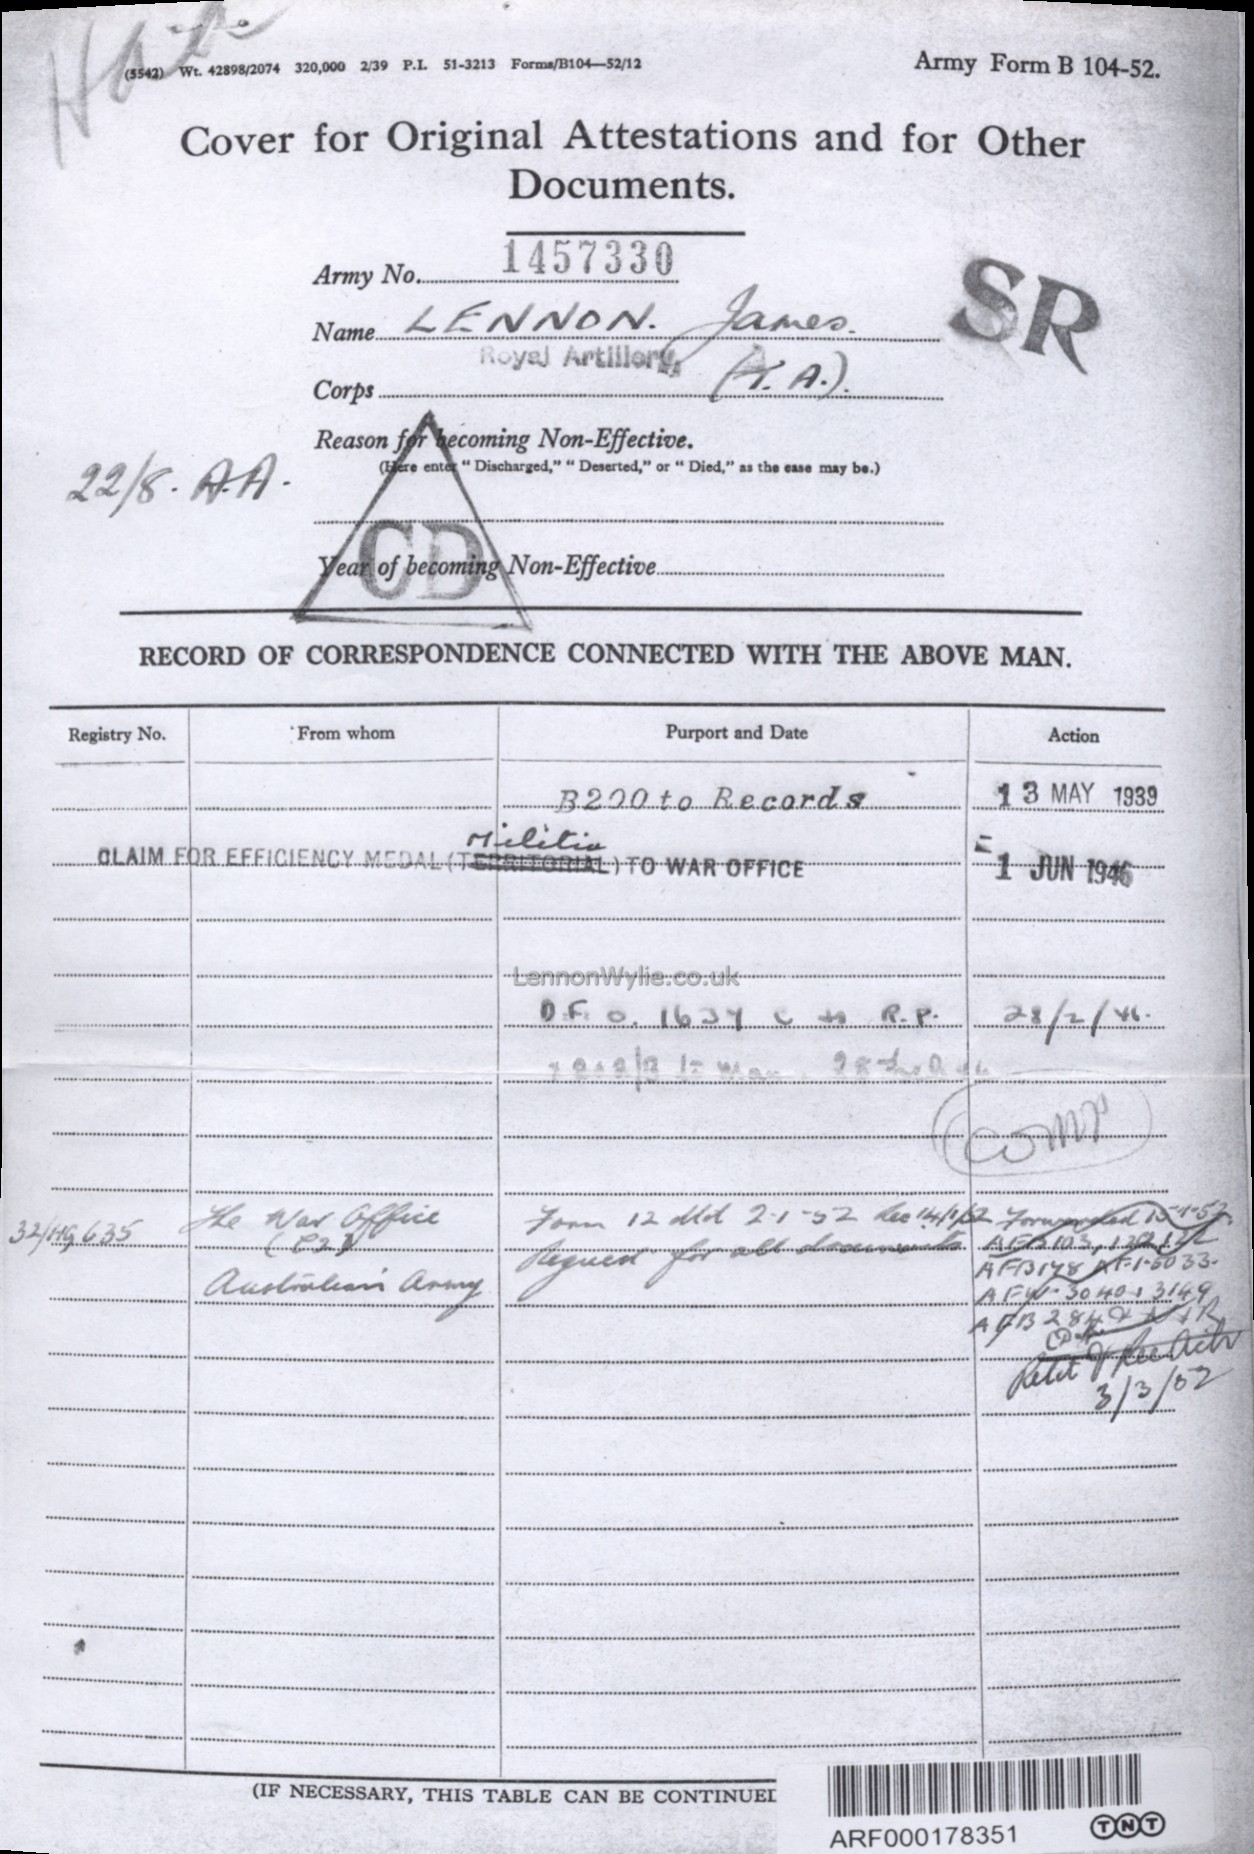 (5542) Wt. 42898/2074 320,000 2/39 P.I. 51-3213 Forms/B104—52/12
Army Form B 104-52.
Cover for Original Attestations and for Other
Documents.
Army No. 1457330
SR
Name LENNON. James.
Royal Artillery,
Corps (T.A.).
Reason for becoming Non-Effective.
(Here enter "Discharged," "Deserted," or "Died," as the case may be.)
22/8. A.A.
CD
Year of becoming Non-Effective
RECORD OF CORRESPONDENCE CONNECTED WITH THE ABOVE MAN.
Registry No. From whom Purport and Date Action
B200 to Records 13 MAY 1939
Militia
CLAIM FOR EFFICIENCY MEDAL (TERRITORIAL) TO WAR OFFICE
1 JUN 1946
LennonWylie.co.uk
D.F.O. 1634 R.P. 28/2/46.
COMP
32/HG635 The War Office Form 12 dtd 2-1-52 Rec 14/1/52 Forwarded 15-1-52.
Request for all documents
Australian Army
3/3/52
(IF NECESSARY, THIS TABLE CAN BE CONTINUED
ARF000178351
TNT